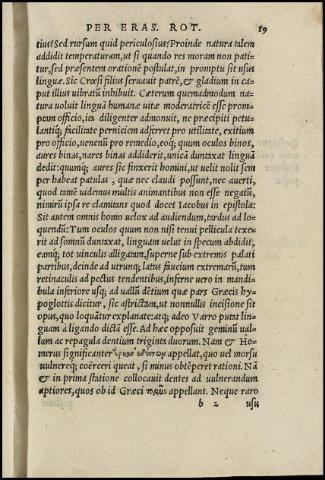 PER ERAS. ROT. 19
tius? Sed rursum quid periculosius? Proinde natura talem
addidit temperaturam, ut si quando res moram non patitur,
sed præsentem orationē postulat, in promptu sit usus
linguæ. Sic Crœsi filius seruauit patrē, & gladium in caput
illius uibratū inhibuit. Cæterum quemadmodum natura
uoluit linguā humanæ uitæ moderatricē esse promptam
officio, ita diligenter admonuit, ne præcipiti petulantiq́;
facilitate perniciem adferret pro utilitate, exitium
pro officio, uenenū pro remedio, eoq́; quum oculos binos,
aures binas, nares binas addiderit, unicā duntaxat linguā
dedit: quumq́; aures sic finxerit homini, ut uelit nolit semper
habeat patulas, quæ nec claudi possunt, nec auerti,
quod tamē uidemus multis animantibus non esse negatū,
nimirū ipsa re clamitans quod docet Iacobus in epistola:
Sit autem omnis homo uelox ad audiendum, tardus ad loquendū:
Tum oculos quum non nisi tenui pellicula texerit
ad somnū duntaxat, linguam uelut in specum abdidit,
eamq́; tot uinculis alligatam, superne sub extremis palati
partibus, deinde ad utrunq; latus faucium extremarū, tum
retinaculis ad pectus tendentibus, inferne uero in mandibula
inferiore usq; ad uallū dētium quæ pars Græcis hypoglottis
dicitur, sic astrictam, ut nonnullis incisione sit
opus, quo loquātur explanate: atq; adeo Varro putat linguam
à ligando dictā esse. Ad hæc opposuit geminū uallum
ac repagula dentium triginta duorum. Nam & Homerus
significanter ἕρκος ὀδόντων appellat, quo uel morsu
uulnereq́; coërceri queat, si minus obtēperet rationi. Nā
& in prima statione collocauit dentes ad uulnerandum
aptiores, quos ob id Græci τομεῖς appellant. Neque raro
b 2 usu